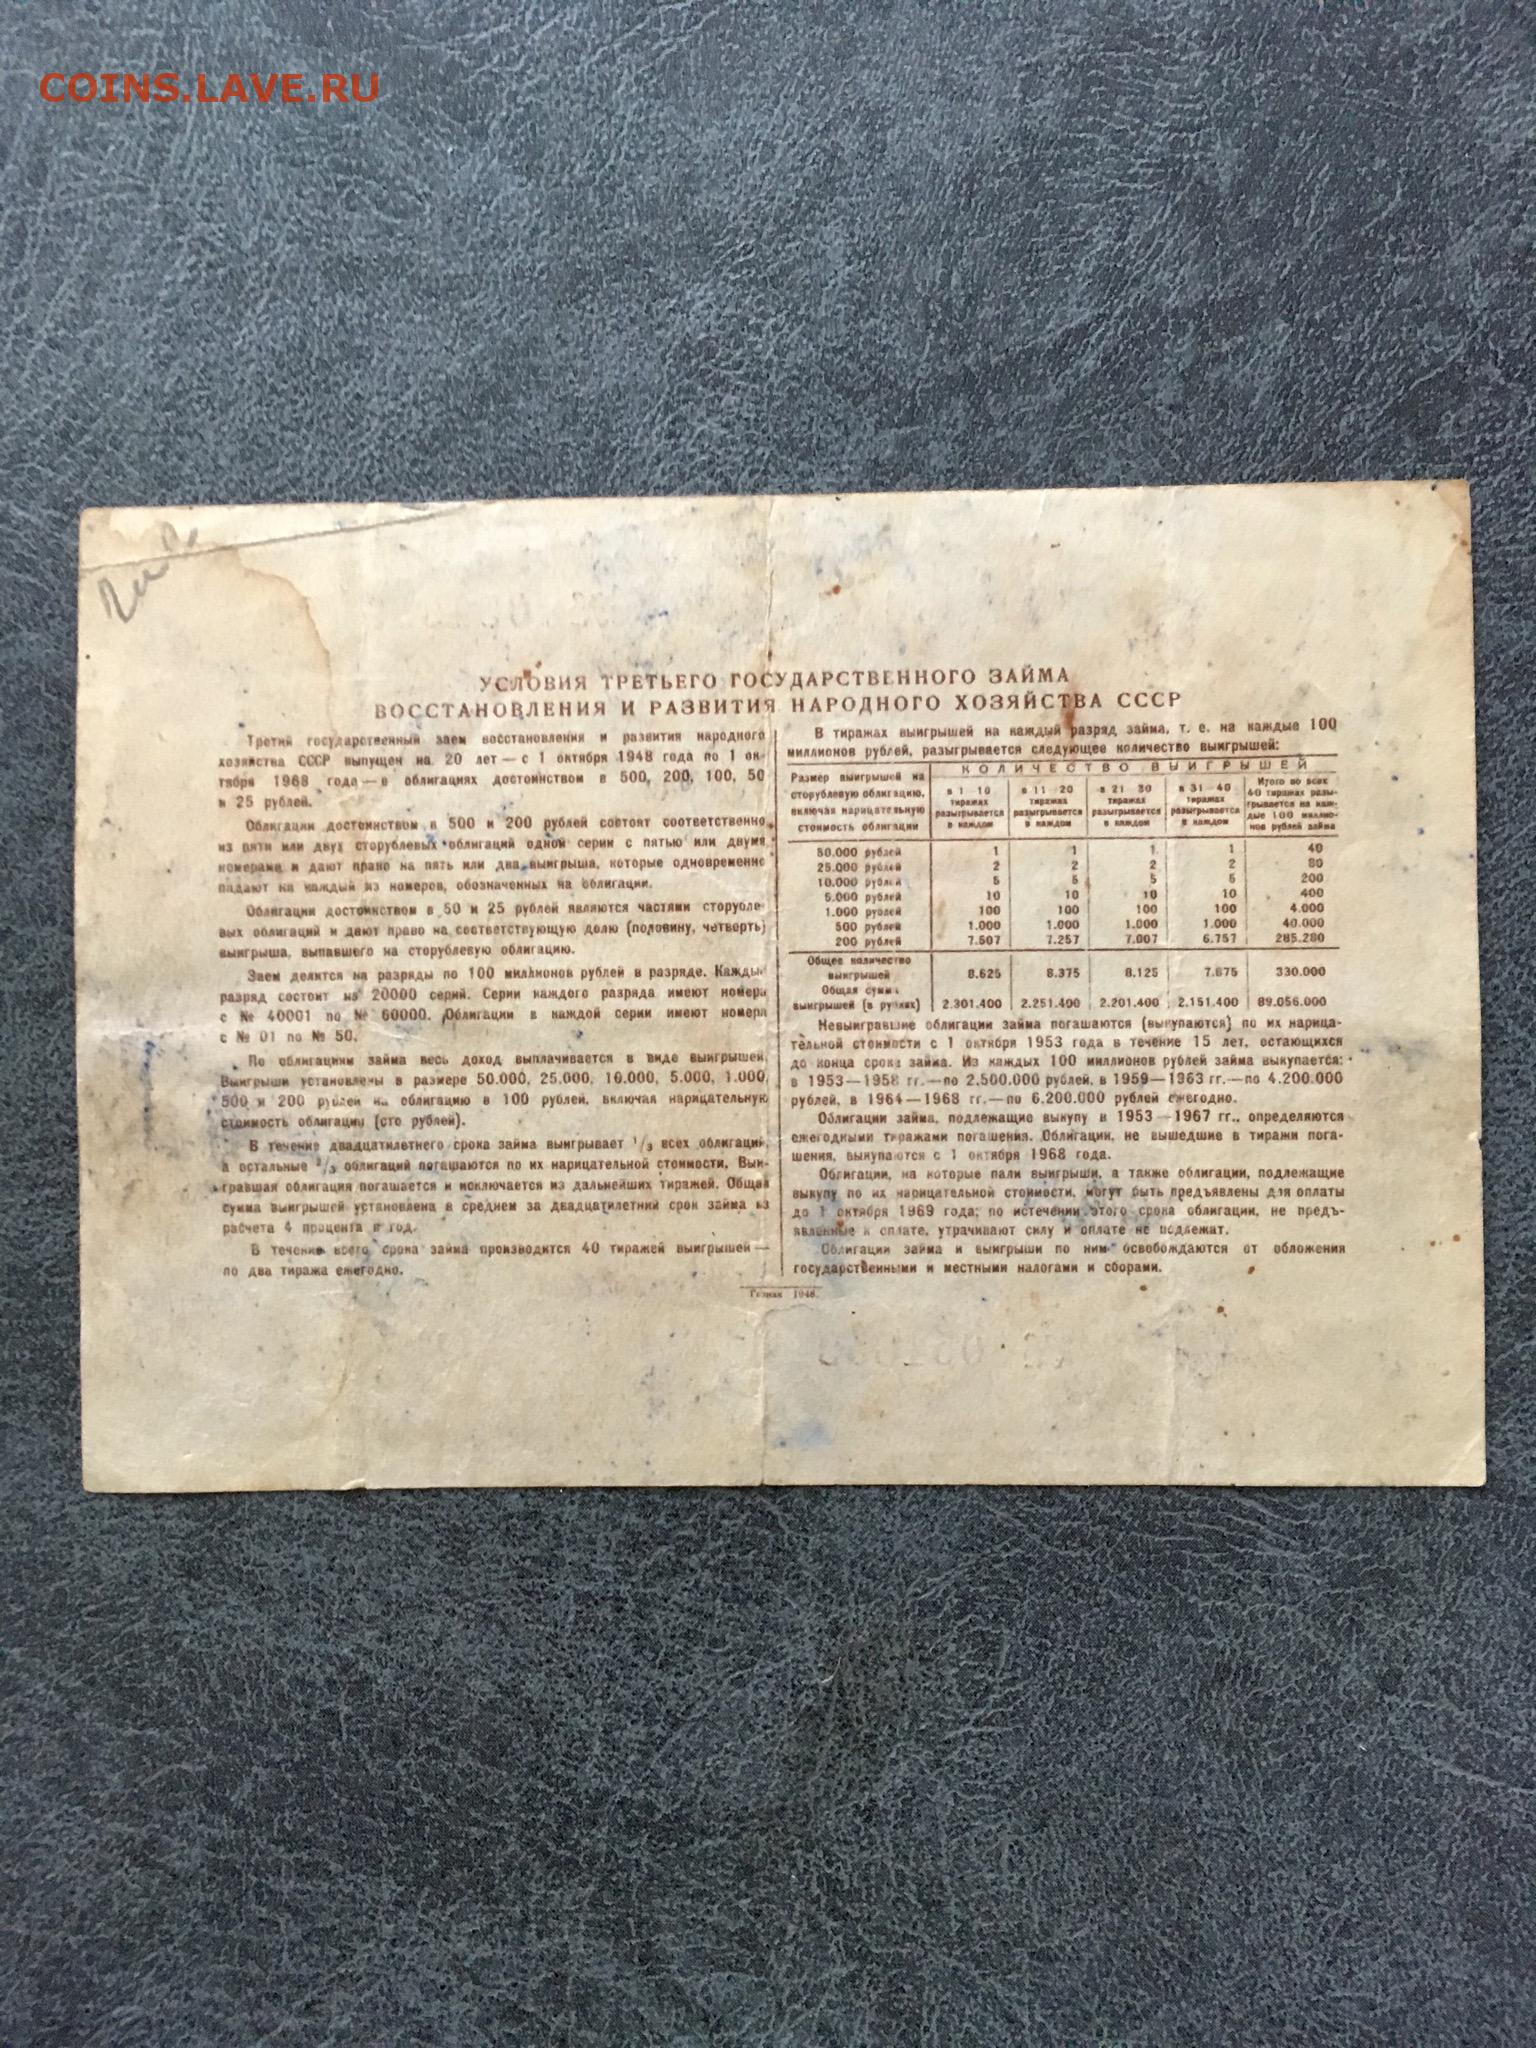 COINS.LAVE.RU
УСЛОВИЯ ТРЕТЬЕГО ГОСУДАРСТВЕННОГО ЗАЙМА
ВОССТАНОВЛЕНИЯ И РАЗВИТИЯ НАРОДНОГО ХОЗЯЙСТВА СССР
Третий государственный заем восстановления и развития народного
хозяйства СССР выпущен на 20 лет — с 1 октября 1948 года по 1 ок-
тября 1968 года — в облигациях достоинством в 500, 200, 100, 50
и 25 рублей.
Облигации достоинством в 500 и 200 рублей состоят соответственно
из пяти или двух сторублевых облигаций одной серии с пятью или двумя
номерами и дают право на пять или два выигрыша, которые одновременно
падают на каждый из номеров, обозначенных на облигации.
Облигации достоинством в 50 и 25 рублей являются частями сторубле-
вых облигаций и дают право на соответствующую долю (половину, четверть)
выигрыша, выпавшего на сторублевую облигацию.
Заем делится на разряды по 100 миллионов рублей в разряде. Каждый
разряд состоит из 20000 серий. Серии каждого разряда имеют номера
с № 40001 по № 60000. Облигации в каждой серии имеют номера
с № 01 по № 50.
По облигациям займа весь доход выплачивается в виде выигрышей.
Выигрыши установлены в размере 50.000, 25.000, 10.000, 5.000, 1.000,
500 и 200 рублей на облигацию в 100 рублей, включая нарицательную
стоимость облигации (сто рублей).
В течение двадцатилетнего срока займа выигрывает 1/3 всех облигаций,
а остальные 2/3 облигаций погашаются по их нарицательной стоимости. Выи-
гравшая облигация погашается и исключается из дальнейших тиражей. Общая
сумма выигрышей установлена в среднем за двадцатилетний срок займа из
расчета 4 процента в год.
В течение всего срока займа производится 40 тиражей выигрышей —
по два тиража ежегодно.
В тиражах выигрышей на каждый разряд займа, т. е. на каждые 100
миллионов рублей, разыгрывается следующее количество выигрышей:
Размер выигрышей на сторублевую облигацию, включая нарицательную стоимость облигации
КОЛИЧЕСТВО ВЫИГРЫШЕЙ
в 1—10 тиражах разыгрывается в каждом
в 11—20 тиражах разыгрывается в каждом
в 21—30 тиражах разыгрывается в каждом
в 31—40 тиражах разыгрывается в каждом
Итого во всех 40 тиражах разыгрывается на каждые 100 миллионов рублей займа
50.000 рублей 1 1 1 1 40
25.000 рублей 2 2 2 2 80
10.000 рублей 5 5 5 5 200
5.000 рублей 10 10 10 10 400
1.000 рублей 100 100 100 100 4.000
500 рублей 1.000 1.000 1.000 1.000 40.000
200 рублей 7.507 7.257 7.007 6.757 285.280
Общее количество выигрышей 8.625 8.375 8.125 7.875 330.000
Общая сумма выигрышей (в рублях) 2.301.400 2.251.400 2.201.400 2.151.400 89.056.000
Невыигравшие облигации займа погашаются (выкупаются) по их нарица-
тельной стоимости с 1 октября 1953 года в течение 15 лет, остающихся
до конца срока займа. Из каждых 100 миллионов рублей займа выкупается:
в 1953—1958 гг.—по 2.500.000 рублей, в 1959—1963 гг.—по 4.200.000
рублей, в 1964—1968 гг.—по 6.200.000 рублей ежегодно.
Облигации займа, подлежащие выкупу в 1953—1967 гг., определяются
ежегодными тиражами погашения. Облигации, не вышедшие в тиражи пога-
шения, выкупаются с 1 октября 1968 года.
Облигации, на которые пали выигрыши, а также облигации, подлежащие
выкупу по их нарицательной стоимости, могут быть предъявлены для оплаты
до 1 октября 1969 года; по истечении этого срока облигации, не предъ-
явленные к оплате, утрачивают силу и оплате не подлежат.
Облигации займа и выигрыши по ним освобождаются от обложения
государственными и местными налогами и сборами.
Гознак 1948.